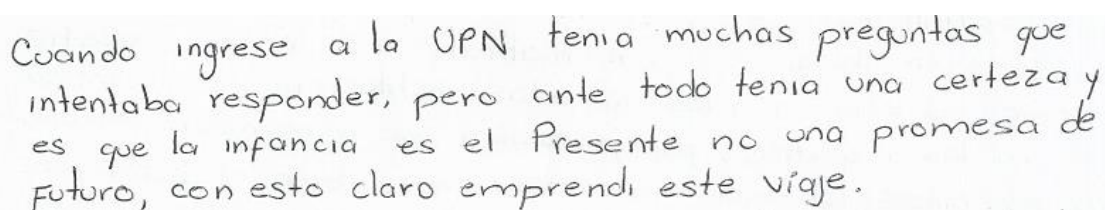 Cuando ingrese a la UPN tenia muchas preguntas que
intentaba responder, pero ante todo tenia una certeza y
es que la infancia es el Presente no una promesa de
Futuro, con esto claro emprendi este viaje.